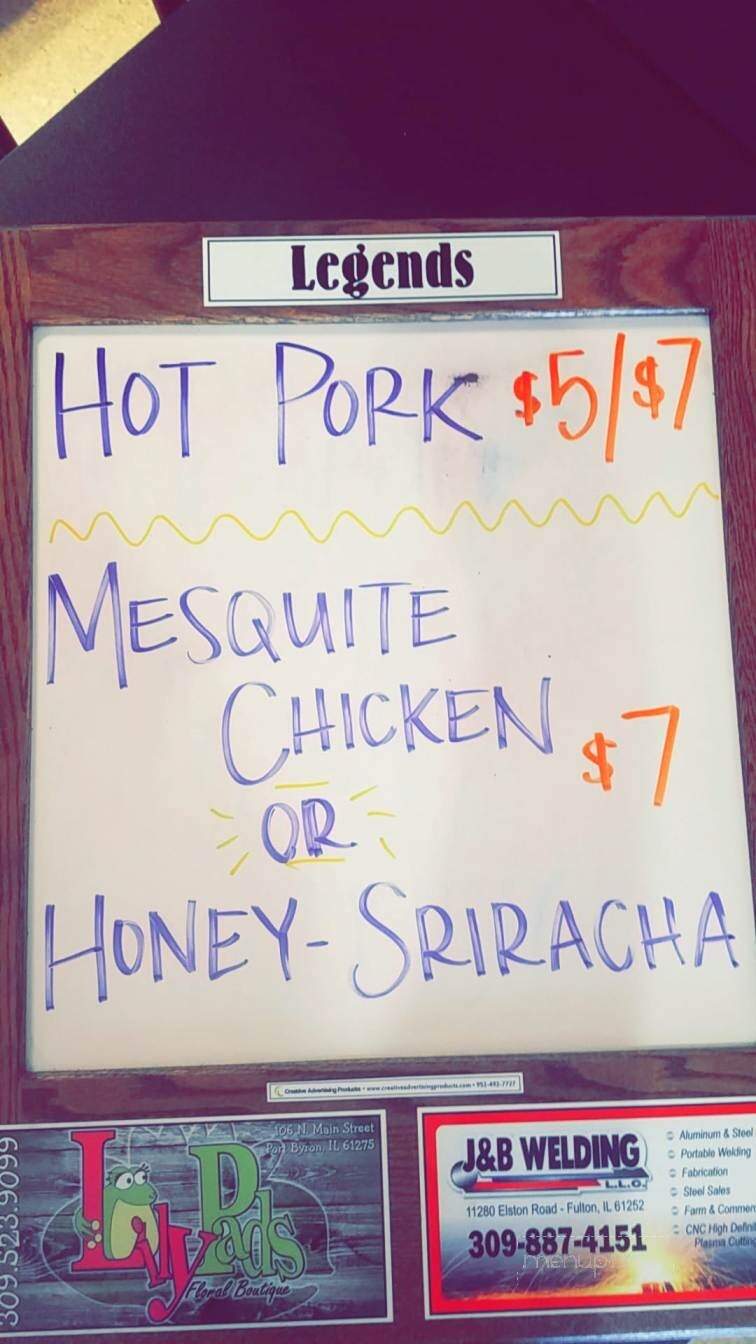 Legends
HOT PORK $5/$7
MESQUITE
CHICKEN $7
OR
HONEY-SRIRACHA
Creative Advertising Products • www.creativeadvertisingproducts.com • 951-493-7727
106 N. Main Street
Port Byron, IL 61275
309.523.9099
Lily Pads
Floral Boutique
J&B WELDING
L.L.C.
11280 Elston Road - Fulton, IL 61252
309-887-4151
Aluminum & Steel
Portable Welding
Fabrication
Steel Sales
Farm & Commer
CNC High Defini
Plasma Cutting
menu